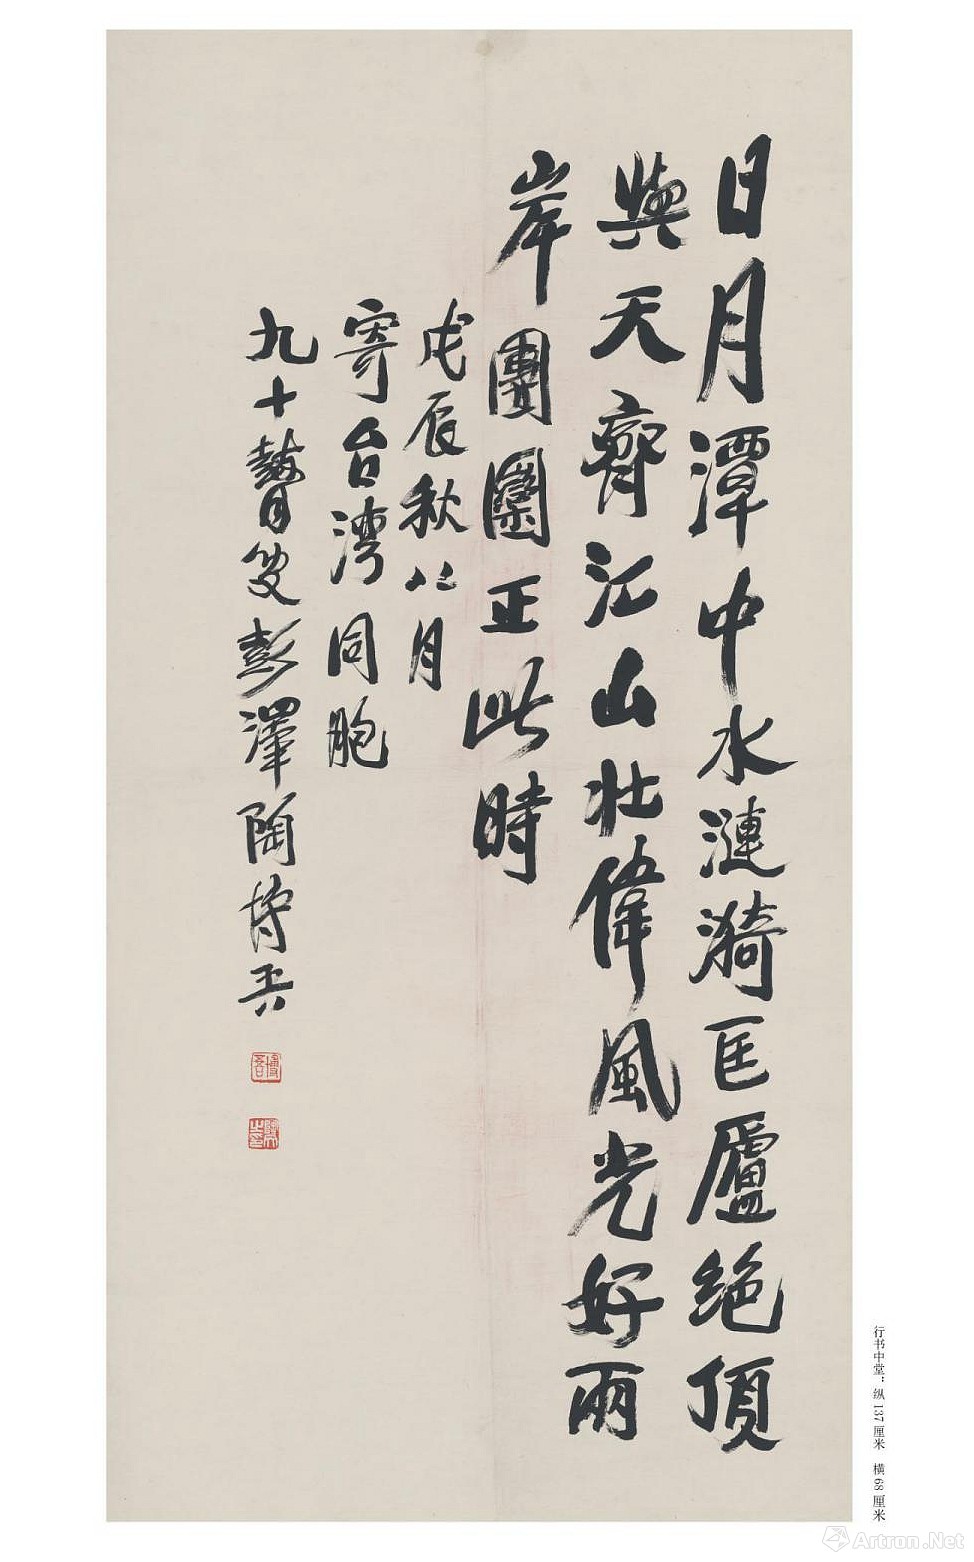 日月潭中水漣漪匡廬绝頂
與天齊江山壯偉風光好兩
岸團圞正此時
戊辰秋八月
寄台湾同胞
九十瞽叟彭澤陶博吾
博吾
陶之印
行书中堂：纵137厘米 横68厘米
Artron.Net